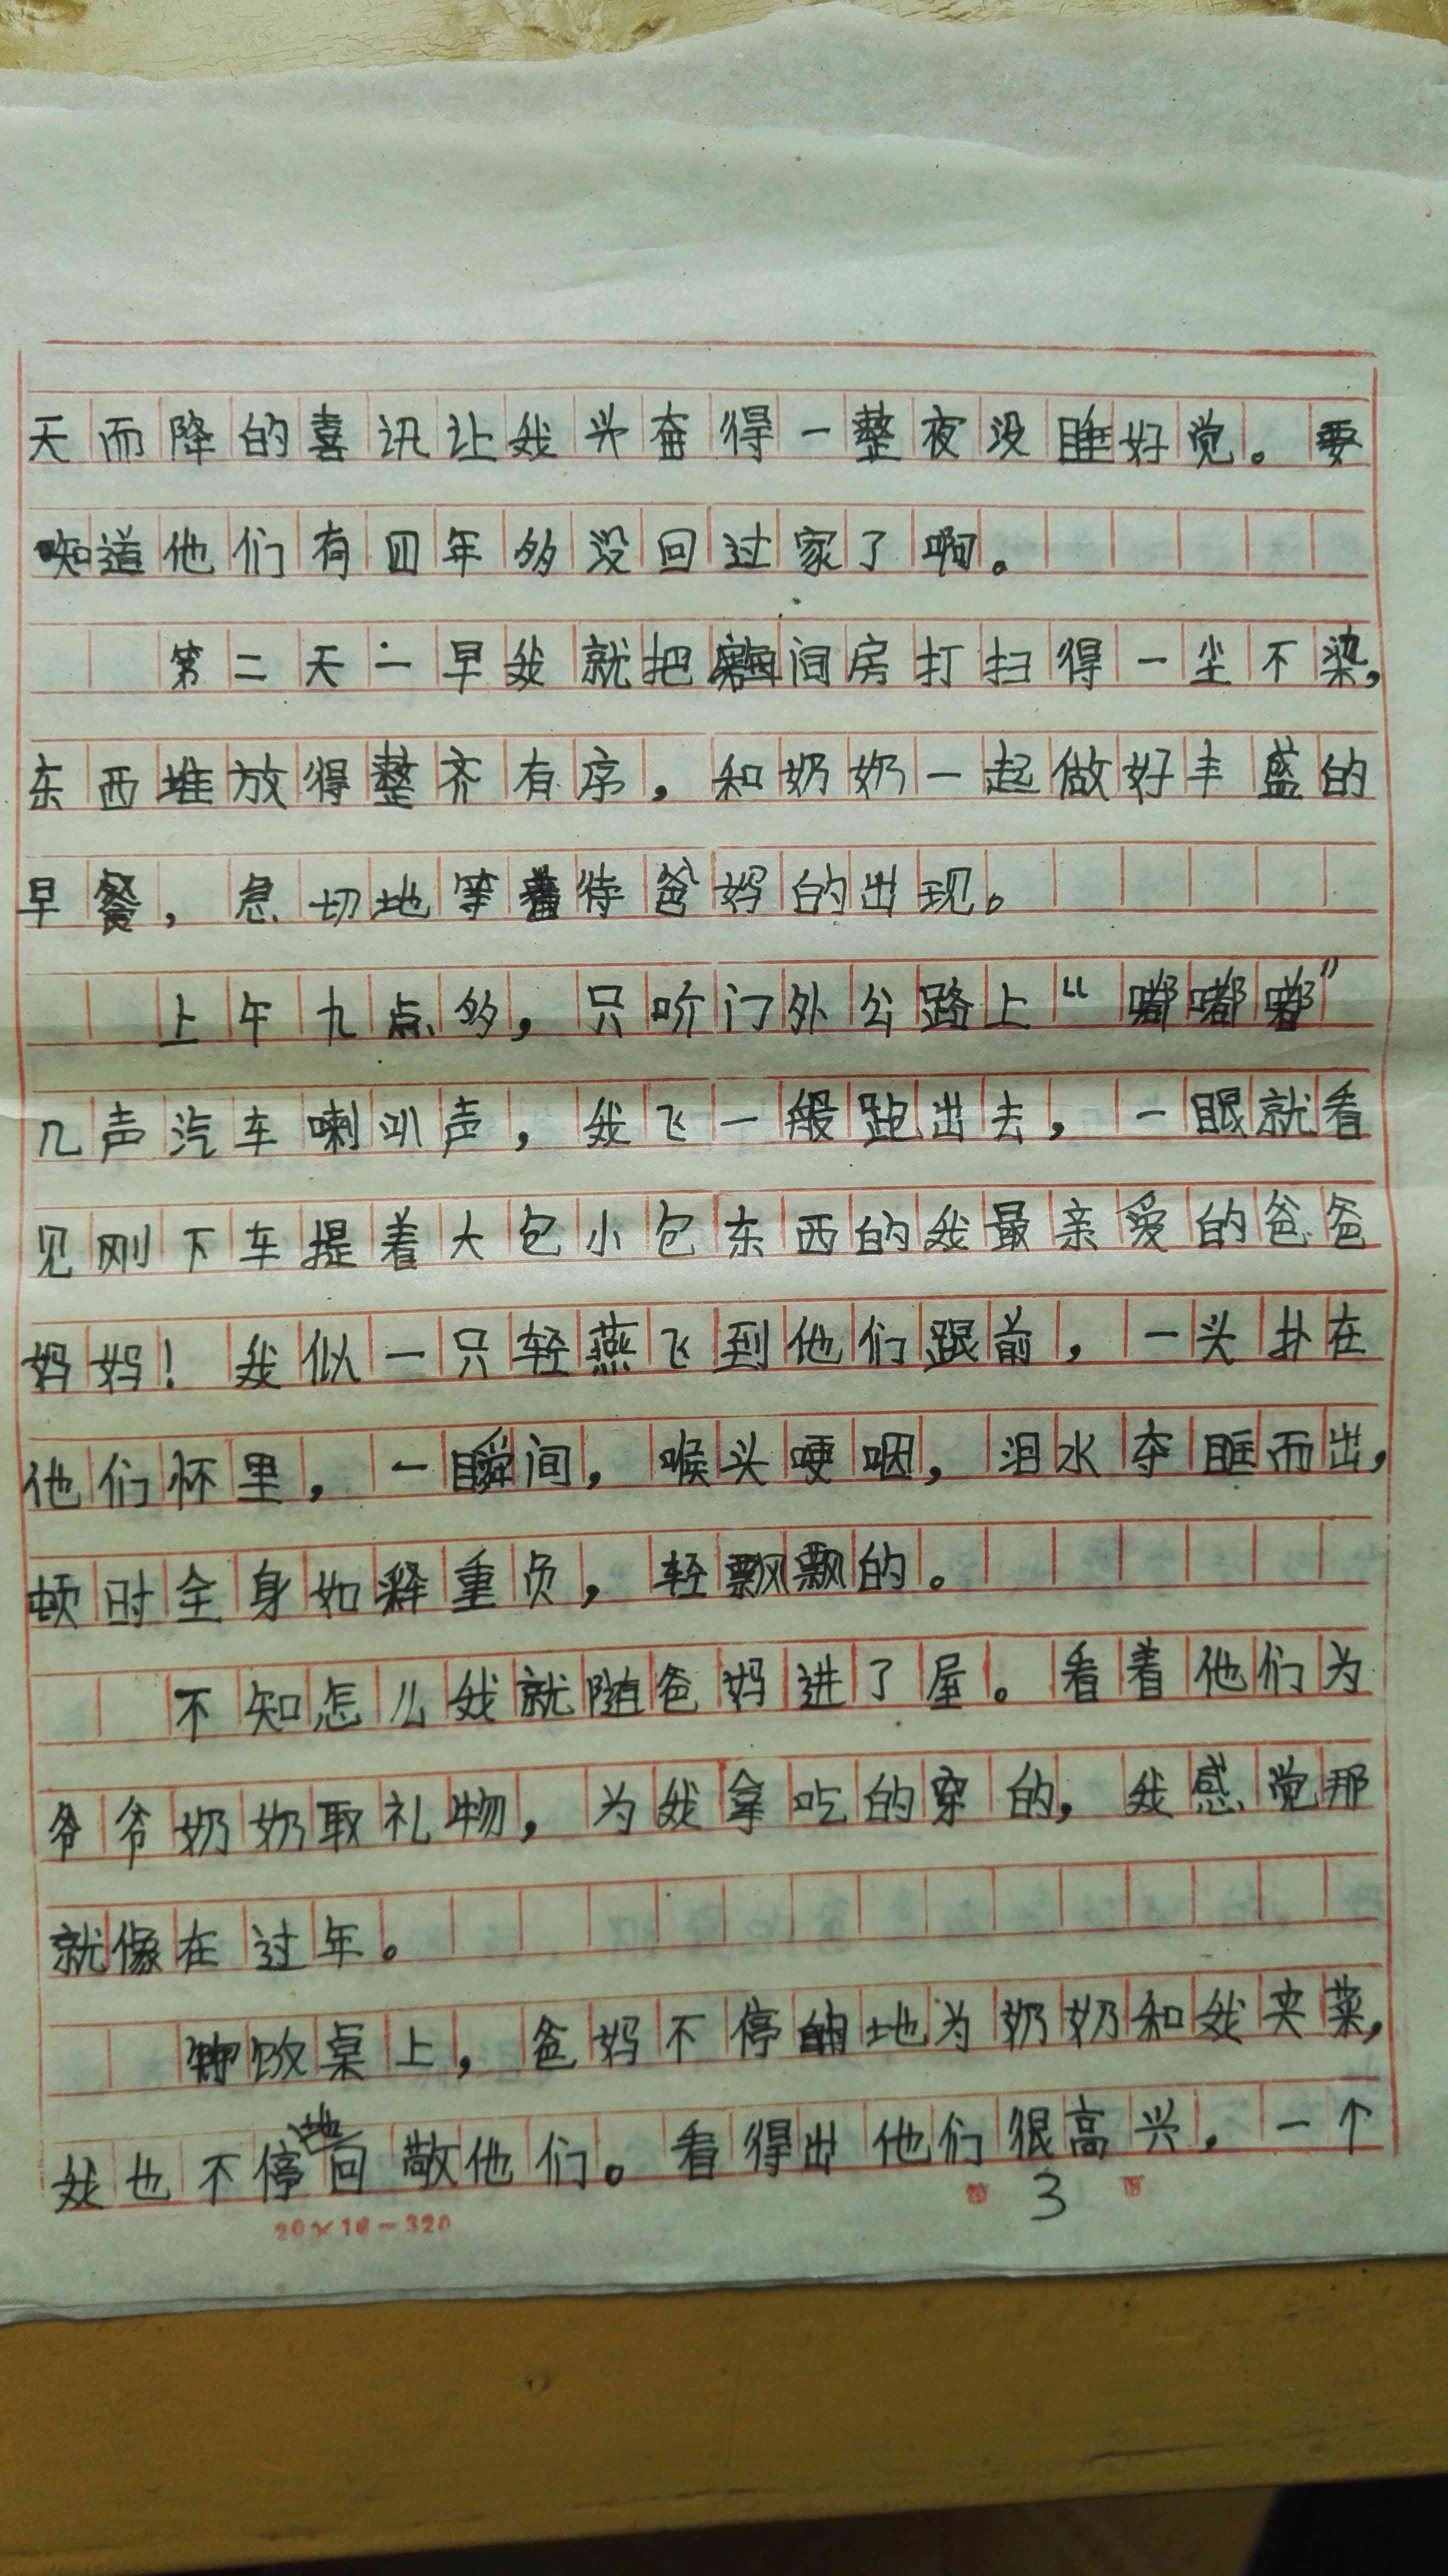 天而降的喜讯让我兴奋得一整夜没睡好觉。要
知道他们有四年多没回过家了啊。
第二天一早我就把间房打扫得一尘不染，
东西堆放得整齐有序，和奶奶一起做好丰盛的
早餐，急切地等待爸妈的出现。
上午九点多，只听门外公路上“嘟嘟嘟”
几声汽车喇叭声，我飞一般跑出去，一眼就看
见刚下车提着大包小包东西的我最亲爱的爸爸
妈妈！我似一只轻燕飞到他们跟前，一头扑在
他们怀里，一瞬间，喉头哽咽，泪水夺眶而出，
顿时全身如释重负，轻飘飘的。
不知怎么我就随爸妈进了屋。看着他们为
爷爷奶奶取礼物，为我拿吃的穿的，我感觉那
就像在过年。
饭桌上，爸妈不停地为奶奶和我夹菜，
我也不停地回敬他们。看得出他们很高兴，一个
20×16=320
第 3 页